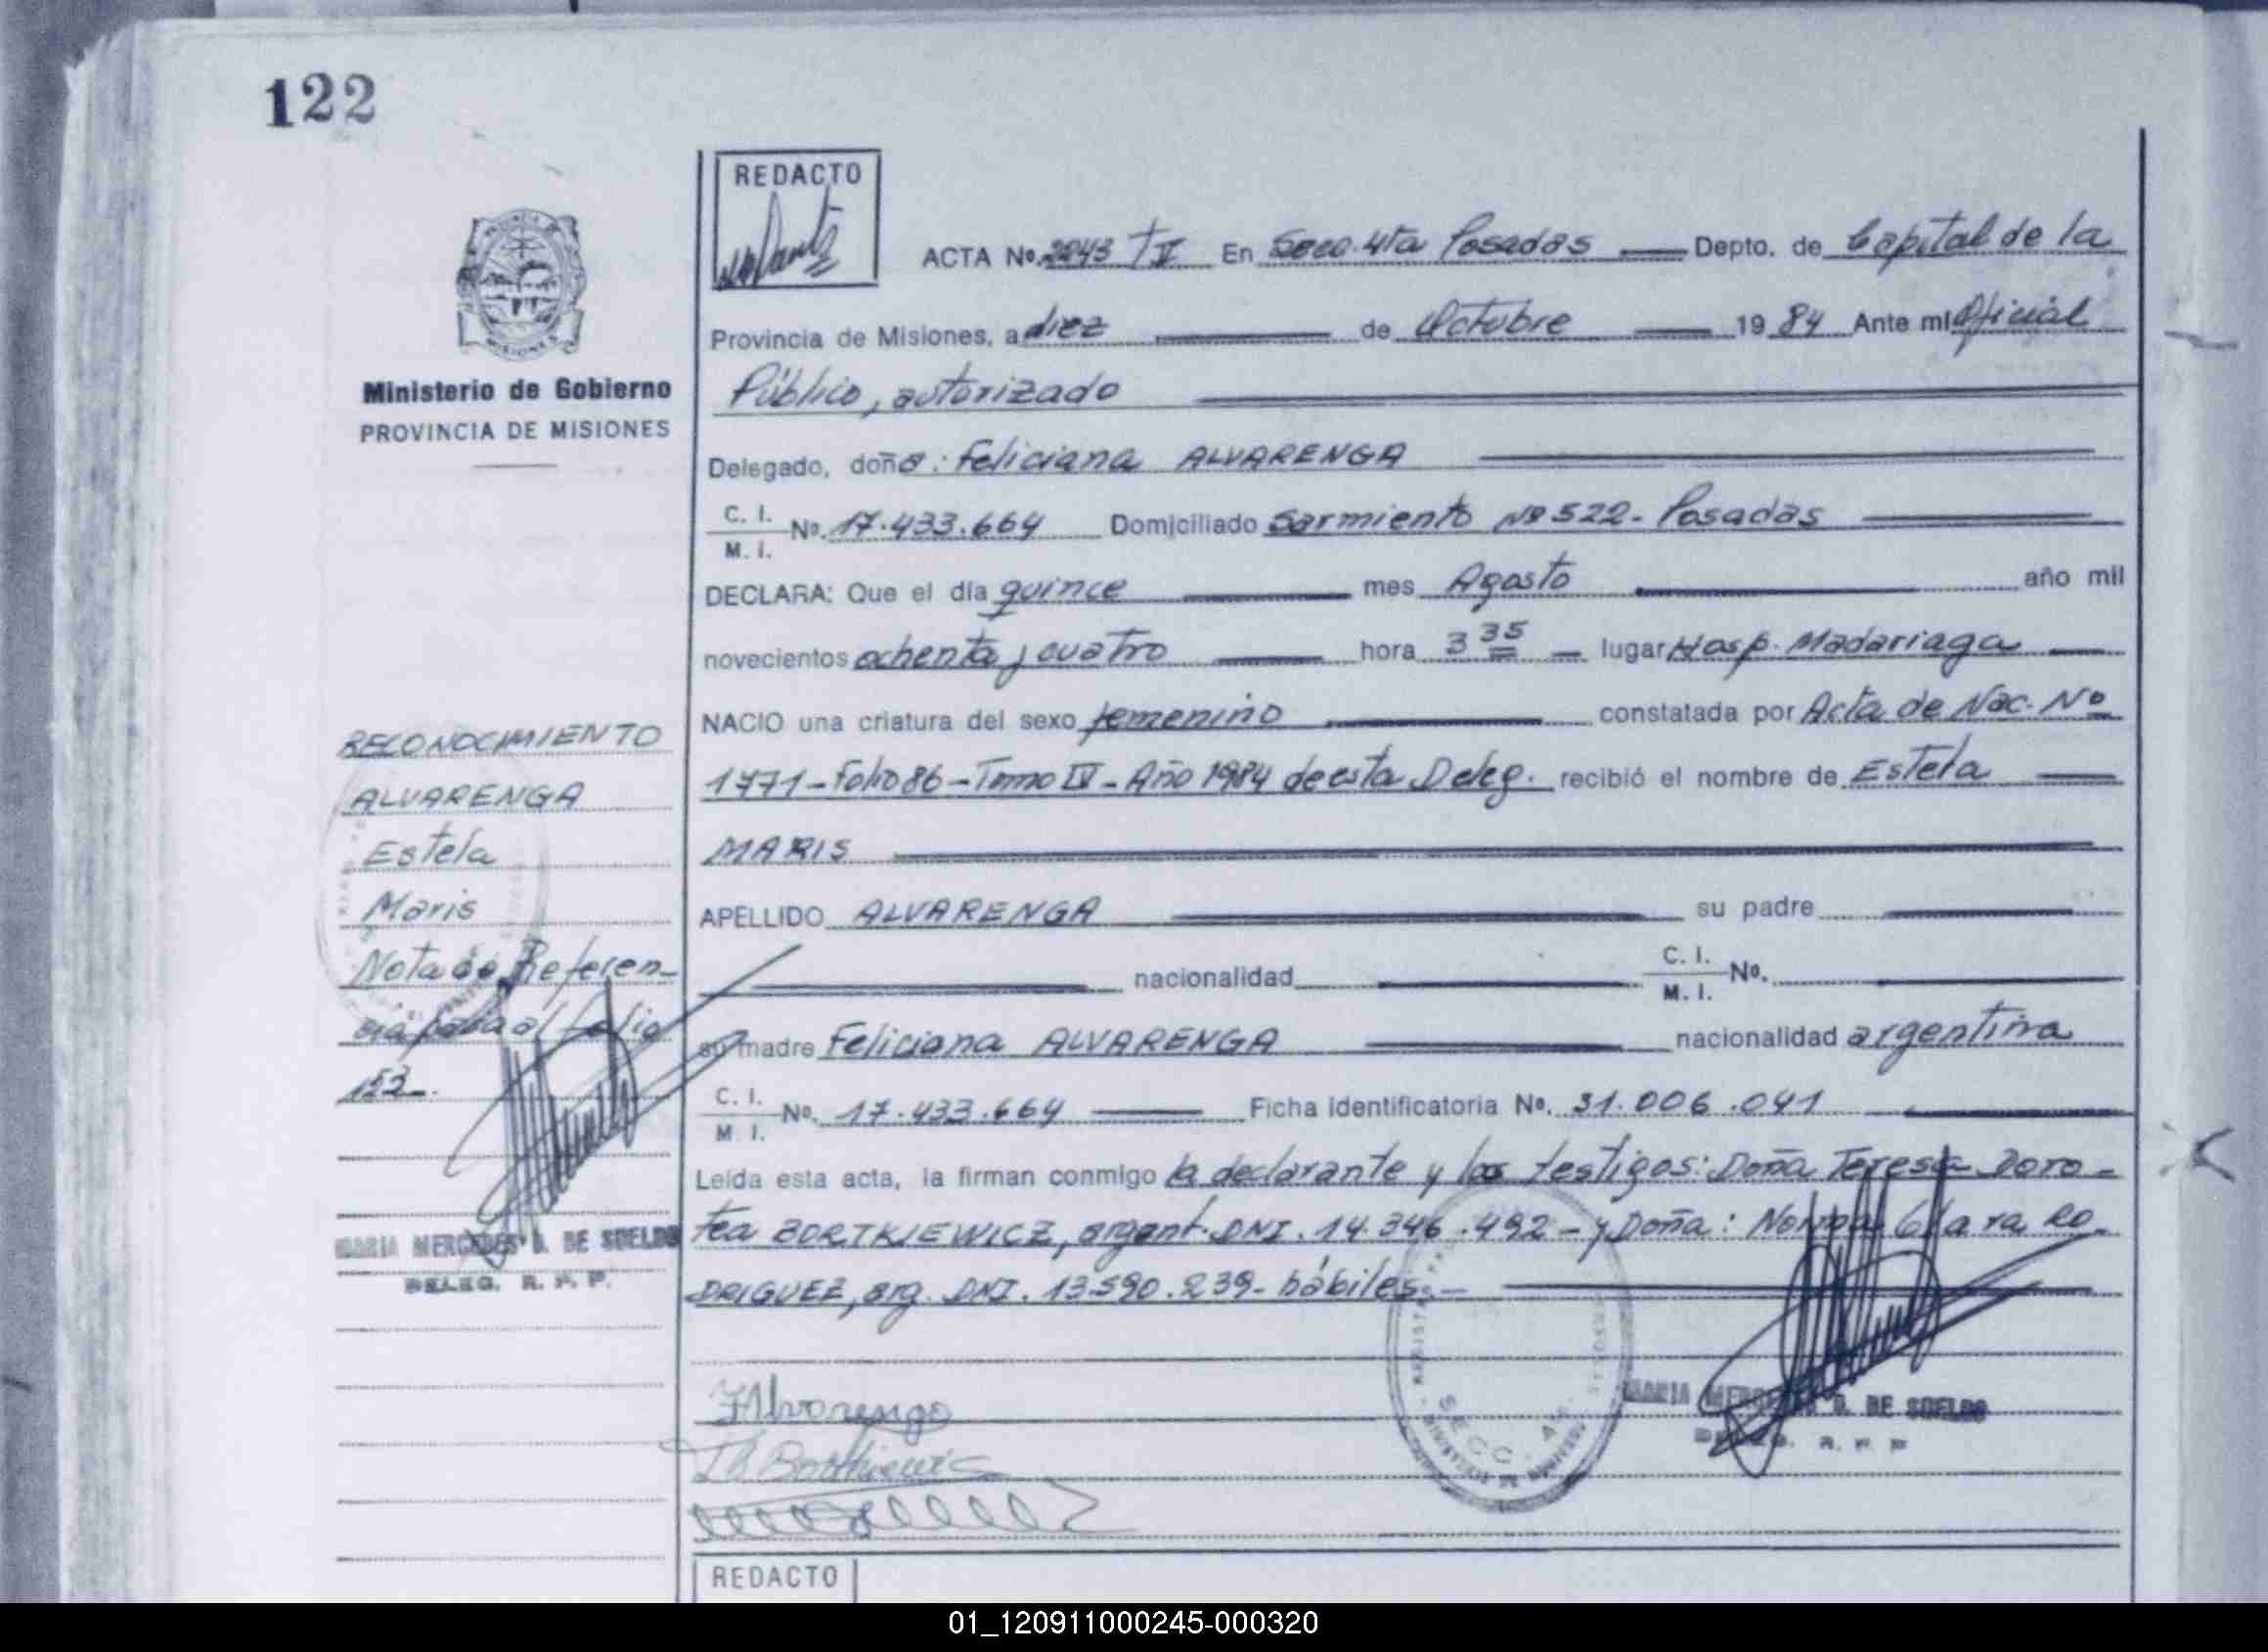 122
REDACTO
ACTA Nº 2243 T V En Secc. 4ta Posadas Depto. de Capital de la
Provincia de Misiones, a diez de Octubre 19 84 Ante mi Oficial
Público, autorizado
Ministerio de Gobierno
PROVINCIA DE MISIONES
Delegado, doña: Feliciana ALVARENGA
C. I.
M. I.
Nº. 17.433.664 Domiciliado Sarmiento Nº 522- Posadas
DECLARA: Que el día quince mes Agosto año mil
novecientos ochenta y cuatro hora 3 35 lugar Hosp. Madariaga
NACIO una criatura del sexo femenino constatada por Acta de Nac. Nº
1771-Folio 86-Tomo IV-Año 1984 de esta Deleg. recibió el nombre de Estela
MARIS
APELLIDO ALVARENGA su padre
nacionalidad C. I.
M. I. Nº.
su madre Feliciana ALVARENGA nacionalidad argentina
C. I.
M. I.
Nº. 17.433.664 Ficha identificatoria Nº. 31.006.041
Leída esta acta, la firman conmigo la declarante y los testigos: Doña Teresa Doro-
tea BORTKIEWICZ, argent. DNI. 14.346.492- y Doña: Norma Clara RO-
DRIGUEZ, arg. DNI. 13.590.239- hábiles.-
RECONOCIMIENTO
ALVARENGA
Estela
Maris
Nota de Referen-
al folio
153-.
MARIA MERCEDES G. DE SUELDO
DELEG. R. P. P.
FAlvarenga
T Bortkiewicz
SECC. 4ta.
MARIA MERCEDES G. DE SUELDO
DELEG. R. P. P
REDACTO
01_120911000245-000320